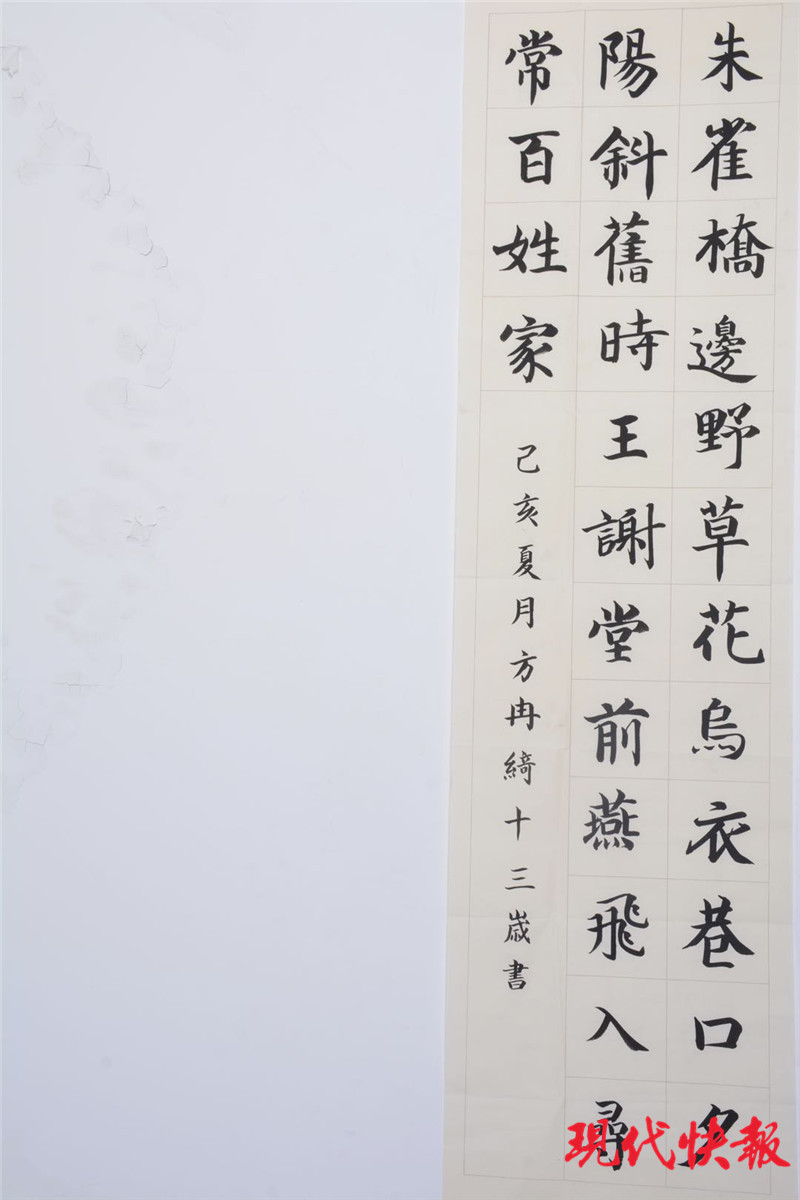 朱雀橋邊野草花烏衣巷口夕
陽斜舊時王謝堂前燕飛入尋
常百姓家
己亥夏月方冉綺十三歲書
現代快報